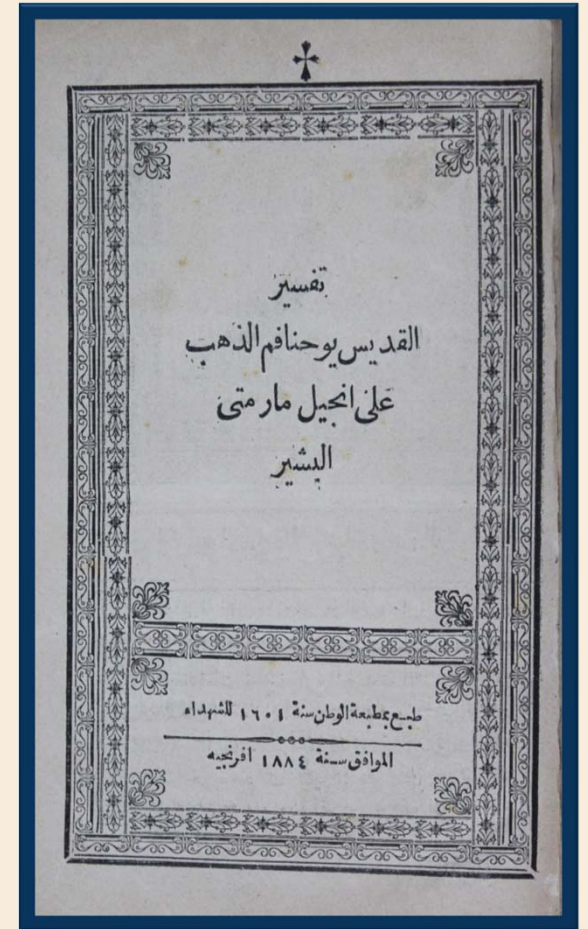 تفسير
القديس يوحنا فم الذهب
على انجيل مار متى
البشير
طبع بمطبعة الوطن سنة ١٦٠١ للشهداء
الموافق سنة ١٨٨٤ افرنجيه